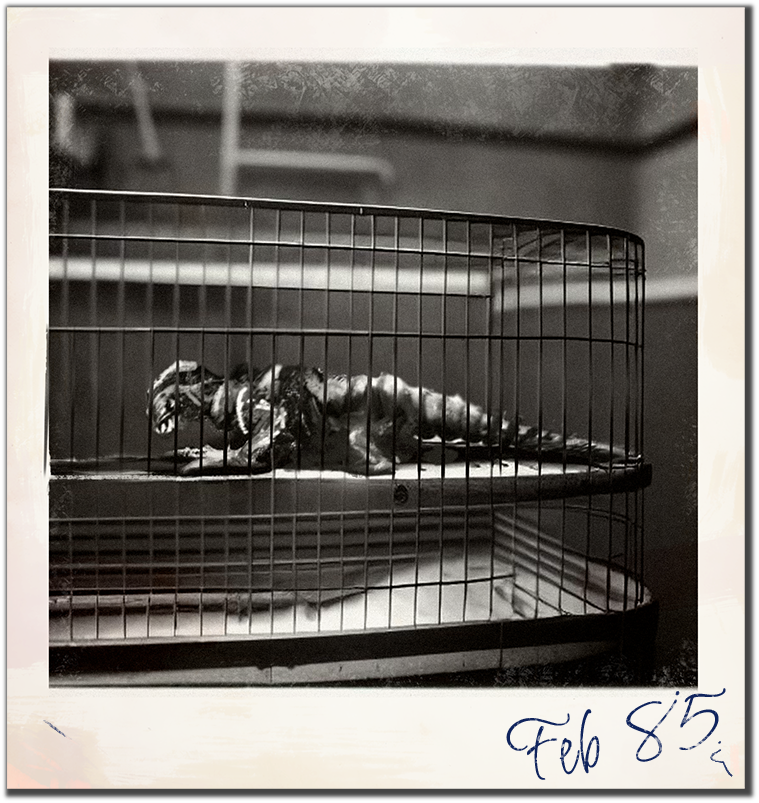 Feb 85